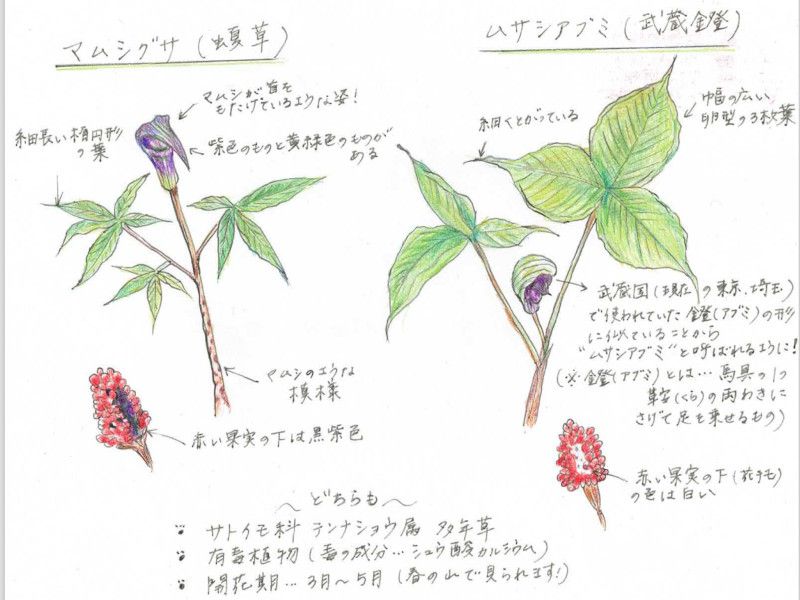 マムシグサ(蝮草)
マムシが首を
もたげているような姿!
細長い楕円形
の葉
紫色のものと黄緑色のものが
ある
マムシのような
模様
赤い果実の下は黒紫色
ムサシアブミ(武蔵鐙)
細くとがっている
幅の広い
卵型の3枚葉
武蔵国(現在の東京、埼玉)
で使われていた鐙(アブミ)の形
に似ていることから
"ムサシアブミ"と呼ばれるように!
(※鐙(アブミ)とは…馬具の1つ
鞍(くら)の両わきに
さげて足を乗せるもの)
赤い果実の下(花手モ)
の色は白い
~どちらも~
サトイモ科 テンナショウ属 多年草
有毒植物(毒の成分…シュウ酸カルシウム)
開花期…3月~5月(春の山で見られます!)